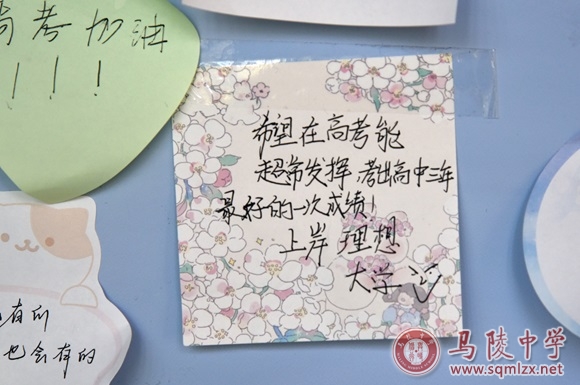 高考加油
！！！
希望在高考能
超常发挥，考出高中三年
最好的一次成绩！
上岸理想
大学
有所
也会有的
马陵中学
www.sqmlzx.net